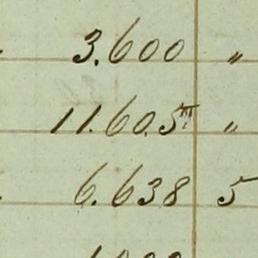 3.600 "
11.605 "
6.638 5